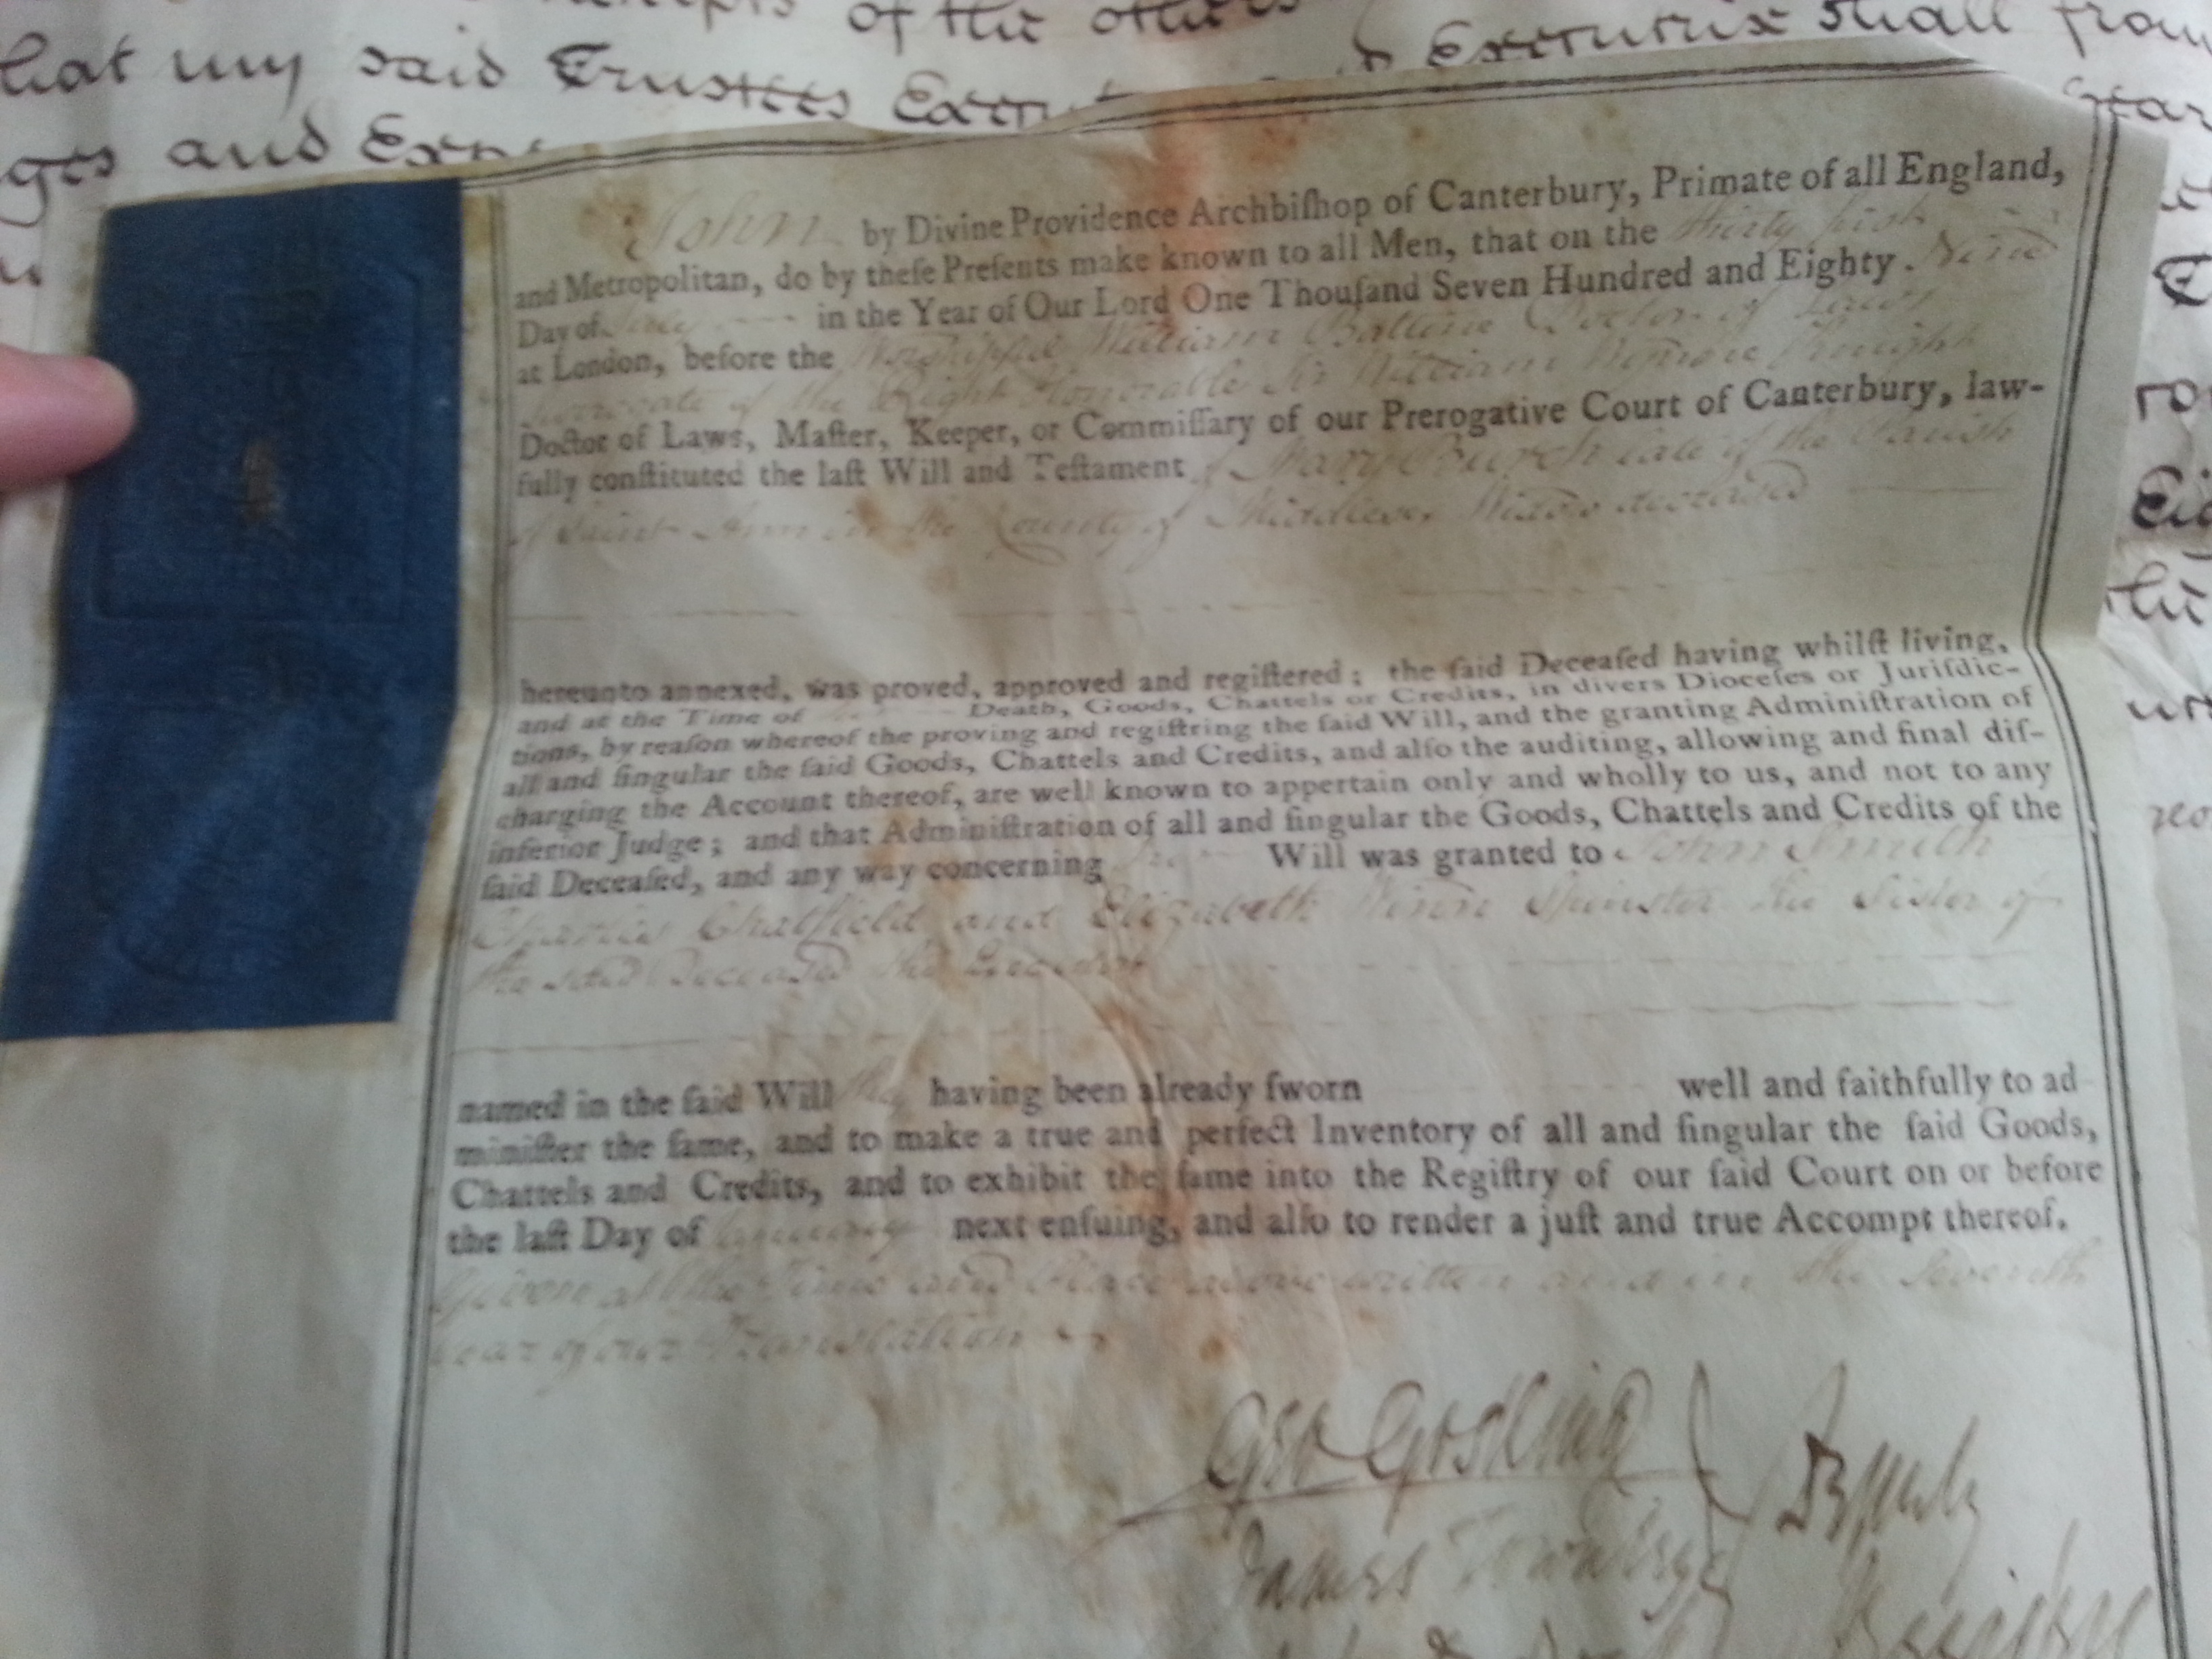 of the others
that my said Trustees Executrix shall from
ges and
John by Divine Providence Archbiſhop of Canterbury, Primate of all England,
and Metropolitan, do by theſe Preſents make known to all Men, that on the thirty first
Day of July in the Year of Our Lord One Thouſand Seven Hundred and Eighty Nine
at London, before the Worshipful William Battine Doctor of Laws
Surrogate of the Right Honorable Sir William Wynne Knight
Doctor of Laws, Maſter, Keeper, or Commiſſary of our Prerogative Court of Canterbury, law-
fully conſtituted the laſt Will and Teſtament of Mary Burch late of the Parish
of Saint Ann in the County of Middlesex Widow deceased
hereunto annexed, was proved, approved and regiſtered; the ſaid Deceaſed having whilſt living,
and at the Time of Death, Goods, Chattels or Credits, in divers Dioceſes or Juriſdic-
tions, by reaſon whereof the proving and regiſtring the ſaid Will, and the granting Adminiſtration of
all and ſingular the ſaid Goods, Chattels and Credits, and alſo the auditing, allowing and final diſ-
charging the Account thereof, are well known to appertain only and wholly to us, and not to any
inferior Judge; and that Adminiſtration of all and ſingular the Goods, Chattels and Credits of the
ſaid Deceaſed, and any way concerning Will was granted to John Smith
Charles Chatfield and Elizabeth Winn Spinster the Sister of
the said Deceased the
named in the ſaid Will they having been already ſworn well and faithfully to ad
miniſter the ſame, and to make a true and perfect Inventory of all and ſingular the ſaid Goods,
Chattels and Credits, and to exhibit the ſame into the Regiſtry of our ſaid Court on or before
the laſt Day of January next enſuing, and alſo to render a juſt and true Accompt thereof.
Given at the Time and Place above written and in the Seventh
year of our Translation
Geo Gostling
James Townley